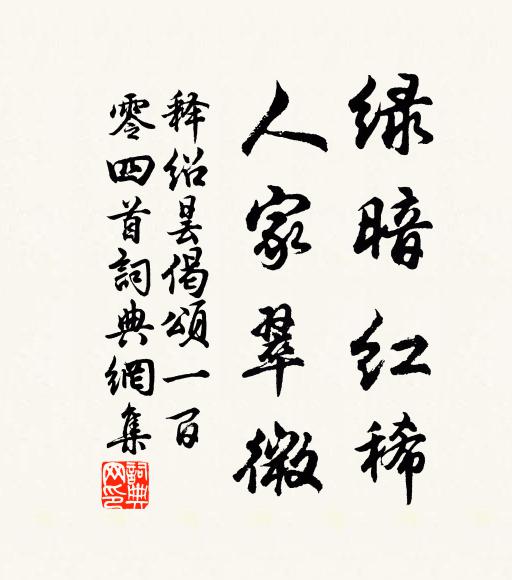 绿暗红稀
人家翠微
释绍昙偈颂一百
零四首詞典網集
詞典网印